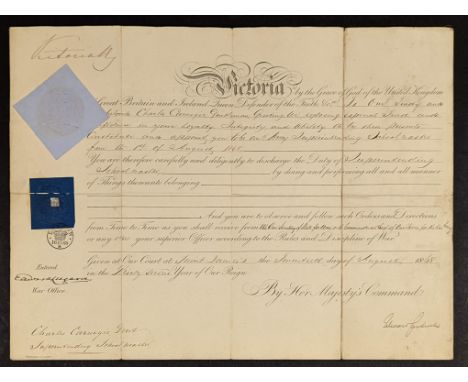 Victoria R
Victoria by the Grace of God of the United Kingdom
of Great Britain and Ireland Queen Defender of the Faith &c. To Our Trusty and
Charles Carnegie Gentleman Greeting We reposing especial Trust and
Confidence in your Loyalty Integrity and ability do by these presents
Constitute and appoint you to be an Army Superintending Schoolmaster
from the 1st of August 18
You are therefore carefully and diligently to discharge the Duty of Superintending
Schoolmaster by doing and performing all and all manner
of Things thereunto belonging
And you are to observe and follow such Orders and Directions
from Time to Time as you shall receive from
or any your superior Officer according to the Rules and Discipline of War
Given at Our Court at Saint James's the day of August 18
in the Year of Our Reign
By Her Majesty's Command
Entered
War Office
Charles Carnegie Gent
Superintending Schoolmaster